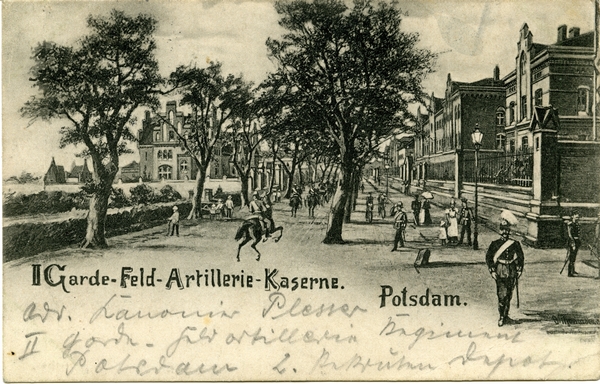 II Garde-Feld-Artillerie-Kaserne.
Potsdam.
adr. Kanonier Plesser
II garde-feldartillerie Regiment
Potsdam 2. Rekruten Depot.